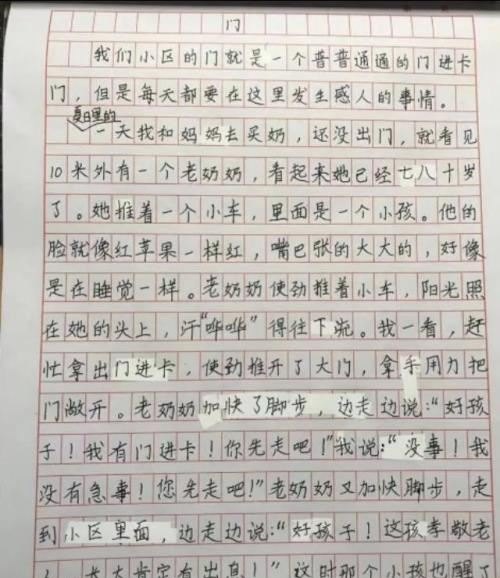 门
我们小区的门就是一个普普通通的门进卡
门，但是每天都要在这里发生感人的事情。
夏日里的
一天我和妈妈去买奶，还没出门，就看见
10米外有一个老奶奶，看起来她已经七八十岁
了。她推着一个小车，里面是一个小孩。他的
脸就像红苹果一样红，嘴巴张的大大的，好像
是在睡觉一样。老奶奶使劲推着小车，阳光照
在她的头上，汗“哗哗”得往下流。我一看，赶
忙拿出门进卡，使劲推开了大门，拿手用力把
门敞开。老奶奶加快了脚步，边走边说：“好孩
子！我有门进卡！你先走吧！”我说：“没事！我
没有急事！您先走吧！”老奶奶又加快脚步，走
到小区里面，边走边说：“好孩子！这孩孝敬老
！长大肯定有出息！”这时那个小孩也醒了